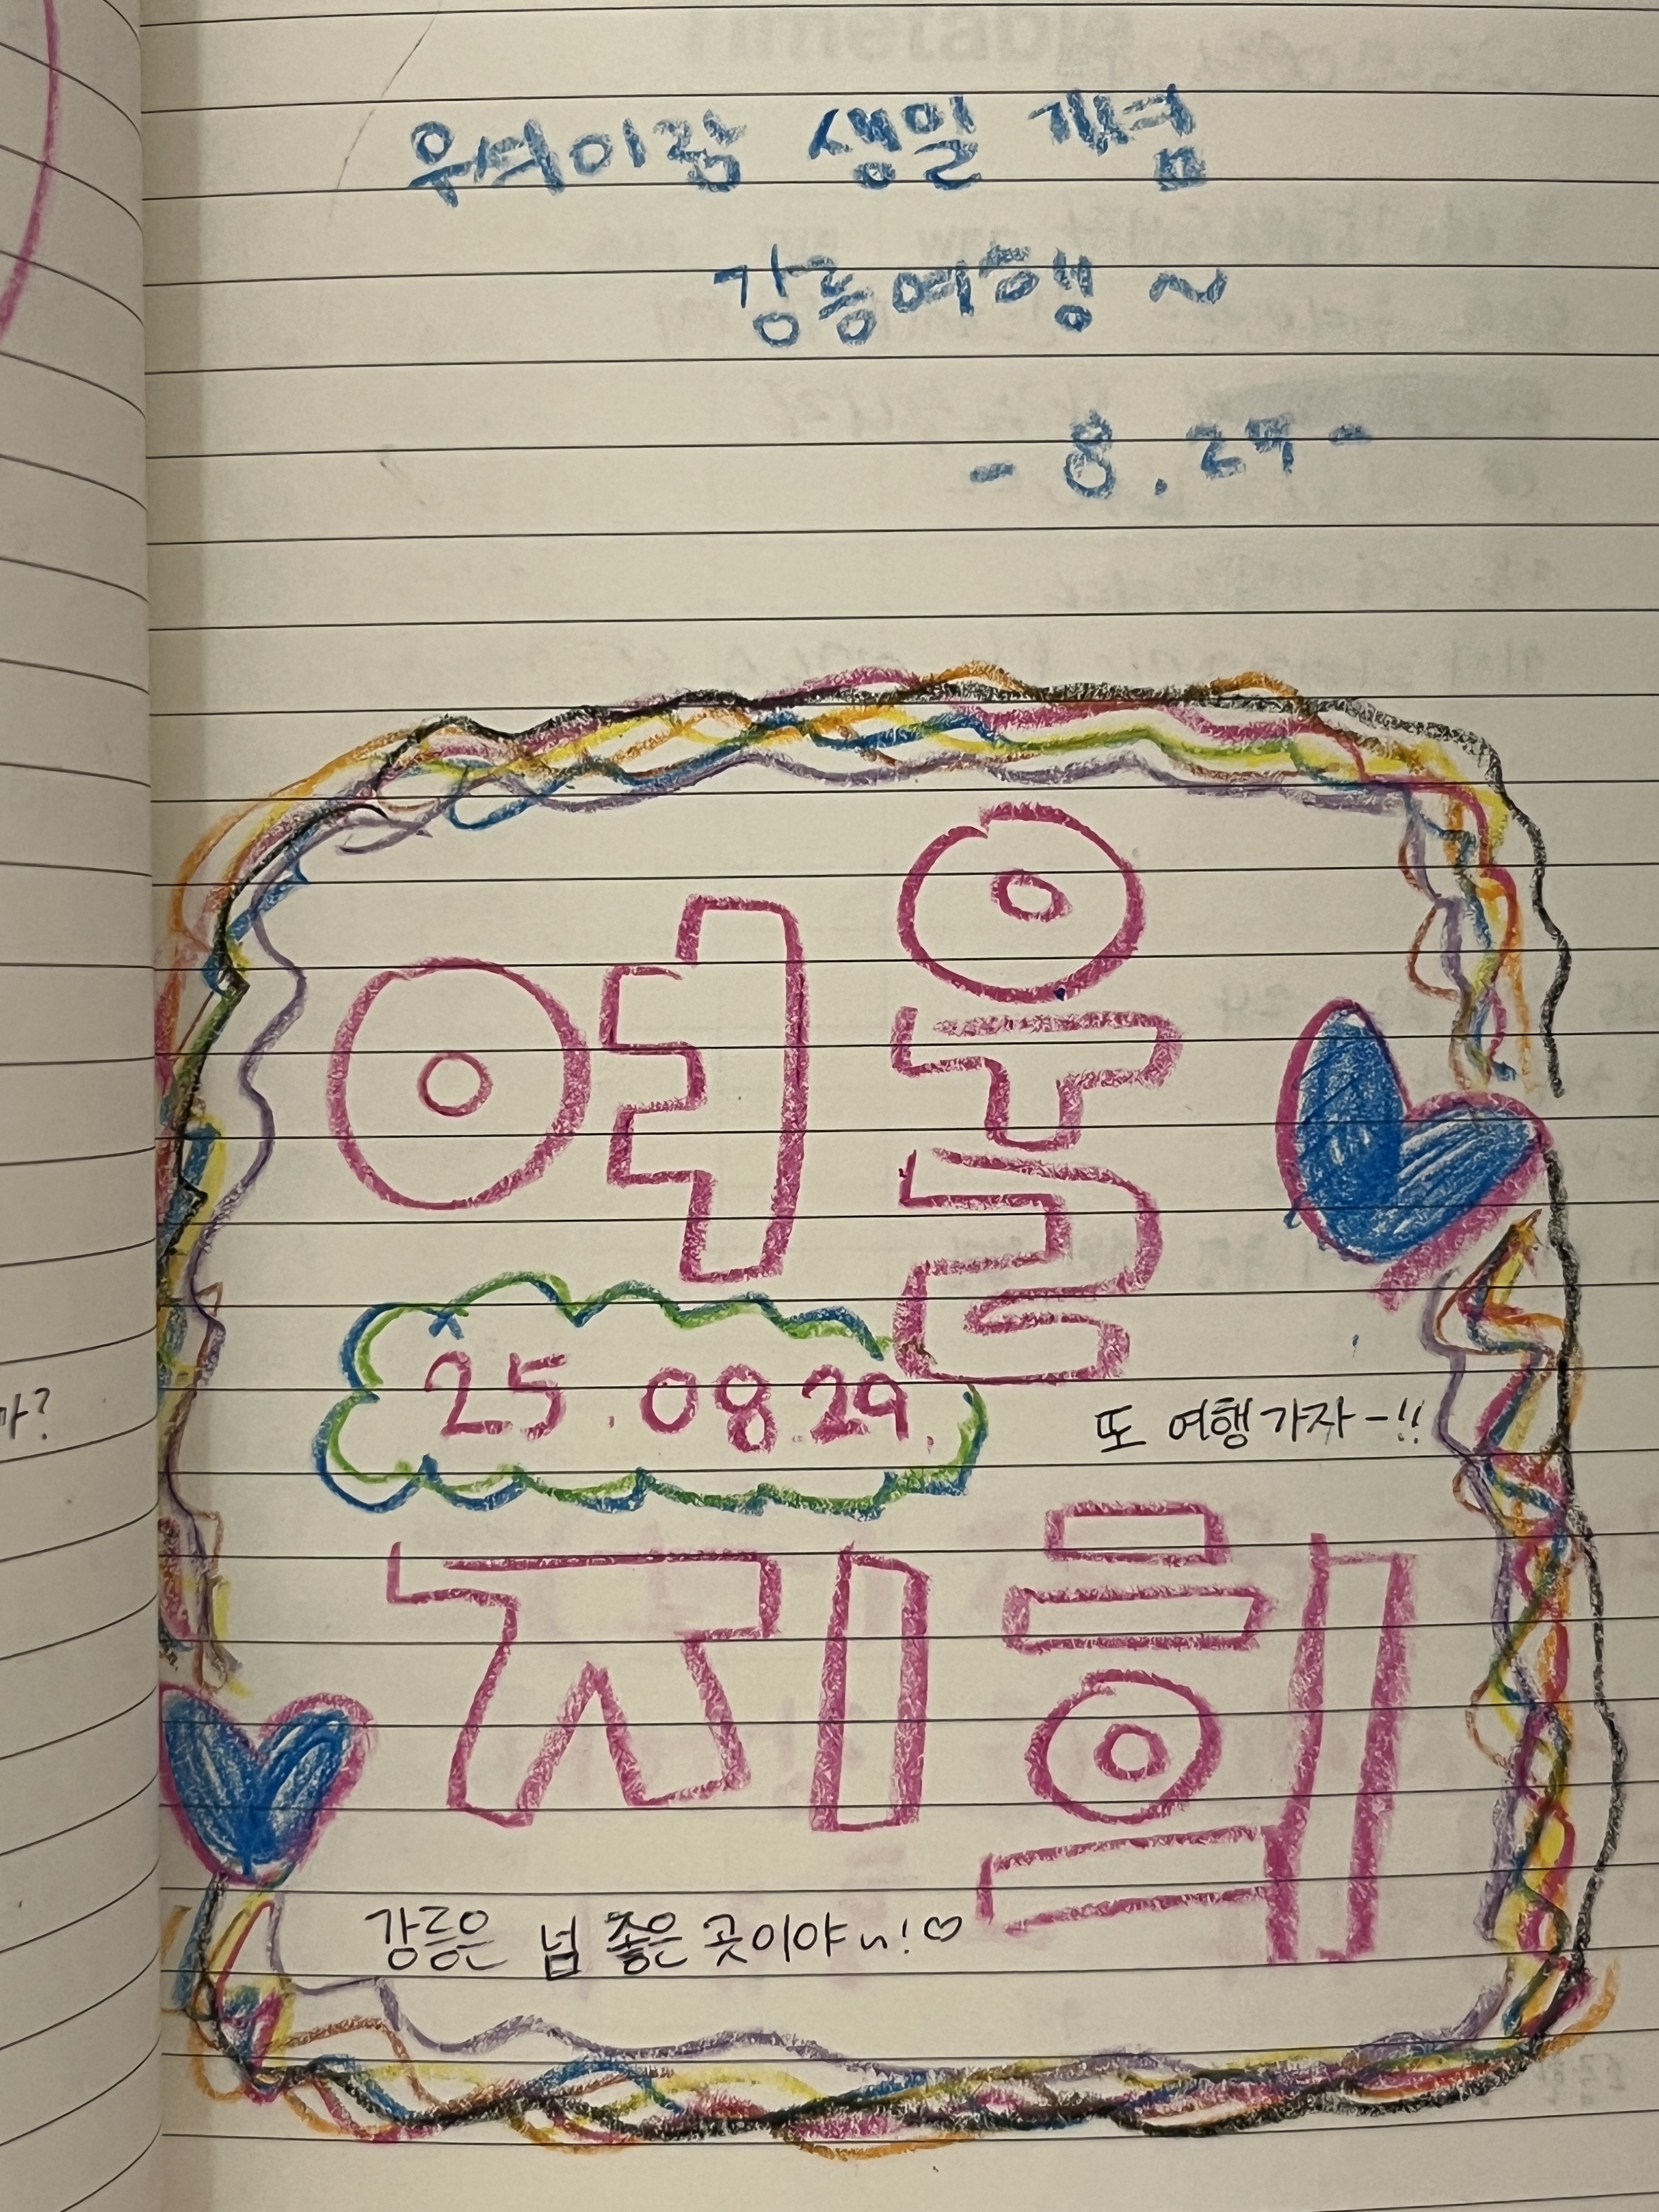 우여이랑 생일 기념
강릉여행 ~
- 8.29 -
여울
25.08.29.
또 여행가자-!!
지희
강릉은 넘 좋은 곳이야~!♡
까?